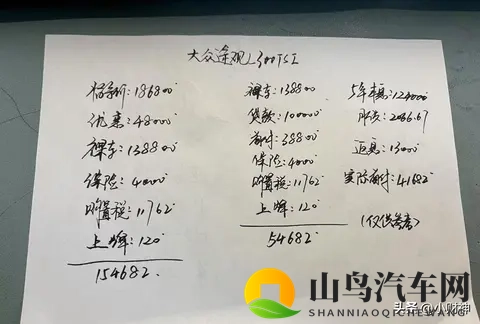 大众途观L300TSI
指导价:186800
优惠:48000
裸车:138800
保险:4000
购置税:11762
上牌:120
154682.
裸车:138800
贷款:100000
首付:38800
保险:4000
购置税:11762
上牌:120
54682
5年本息:124000
月供:2066.67
返息:13000
实际首付:41682
(仅供参考)
山鸟汽车网
SHANNIAOQICHEWANG
头条@小财神